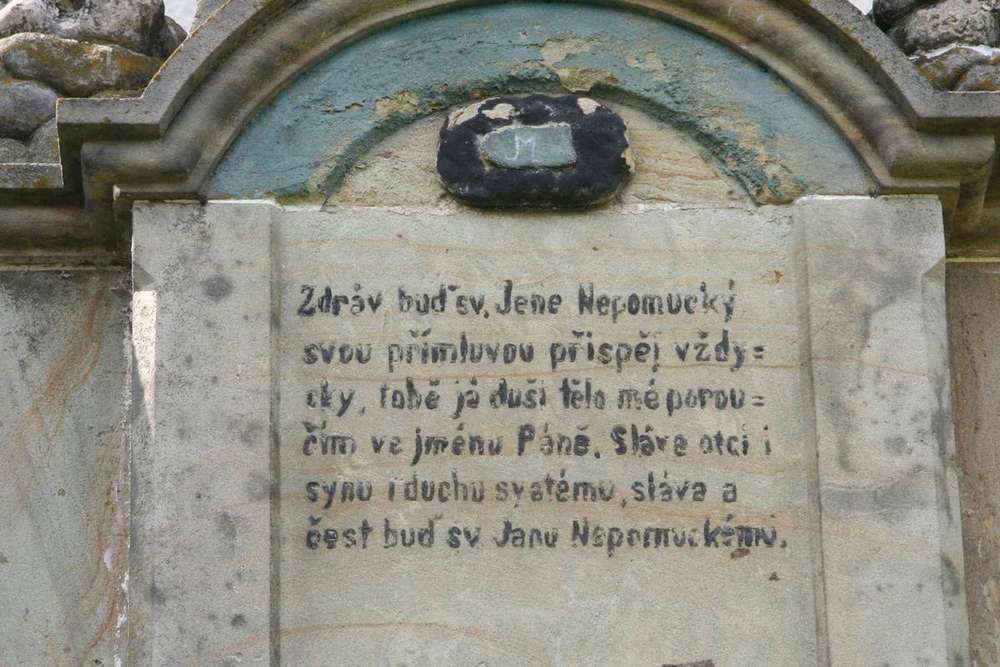 JM
Zdráv buď sv. Jene Nepomucký
svou přímluvou přispěj vždy=
cky, tobě já duši tělo mé porou=
čím ve jménu Páně. Sláve otci i
synu i duchu svatému, sláva a
čest buď sv. Janu Nepomuckému.